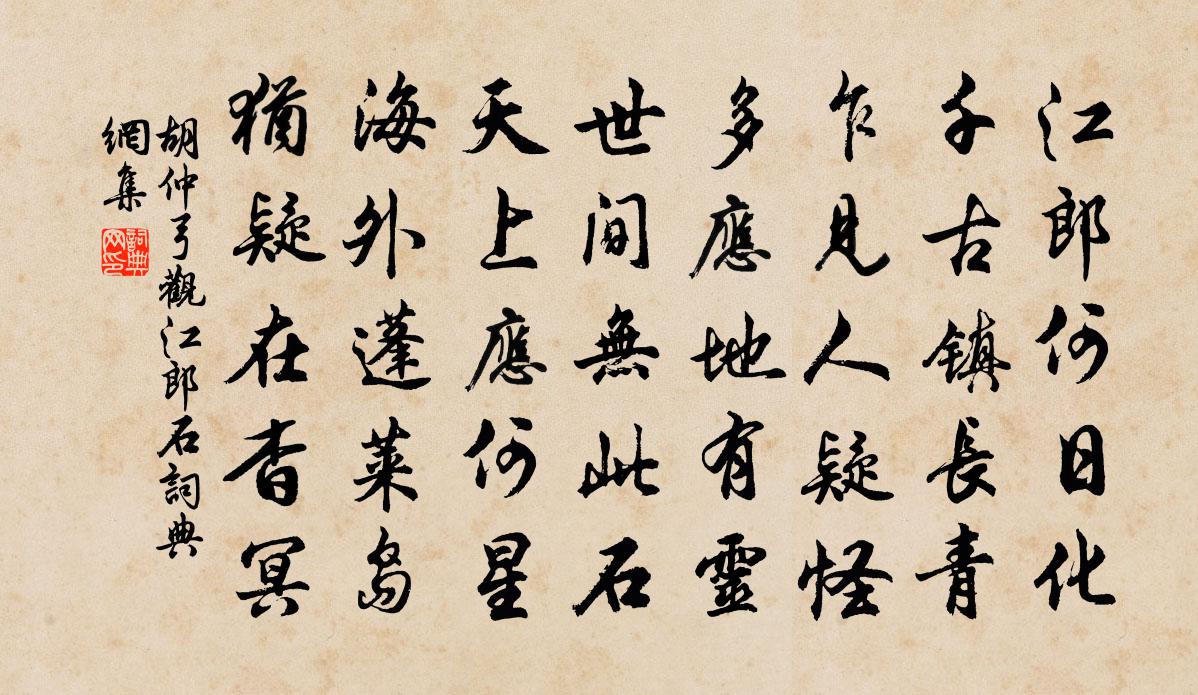 江郎何日化
千古镇長青
乍見人疑怪
多應地有靈
世間無此石
天上應何星
海外蓬萊島
猶疑在杳冥
胡仲弓觀江郎石詞典
網集
詞典
网印